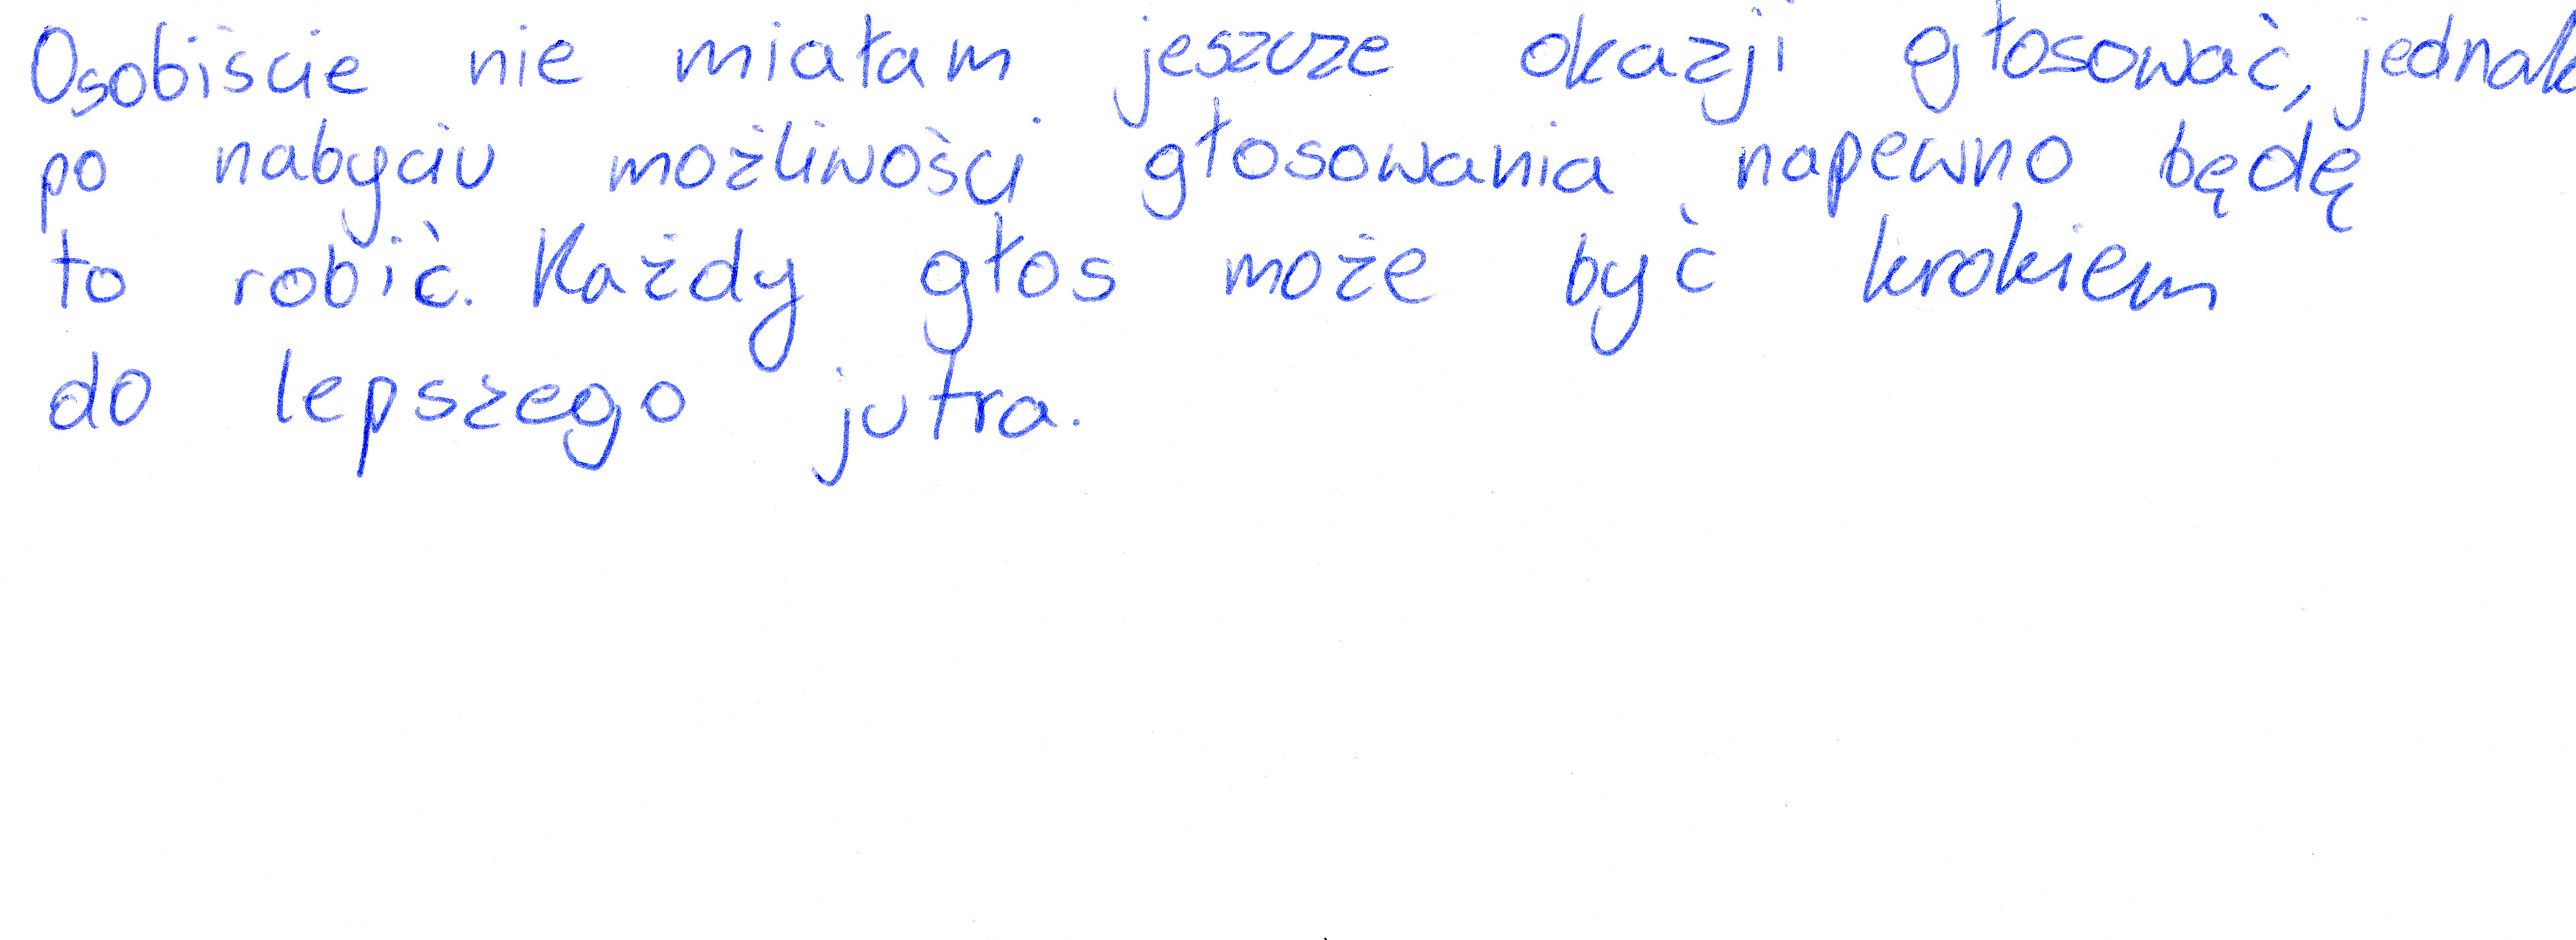 Osobiście nie miałam jeszcze okazji głosować, jednak
po nabyciu możliwości głosowania napewno będę
to robić. Każdy głos może być krokiem
do lepszego jutra.